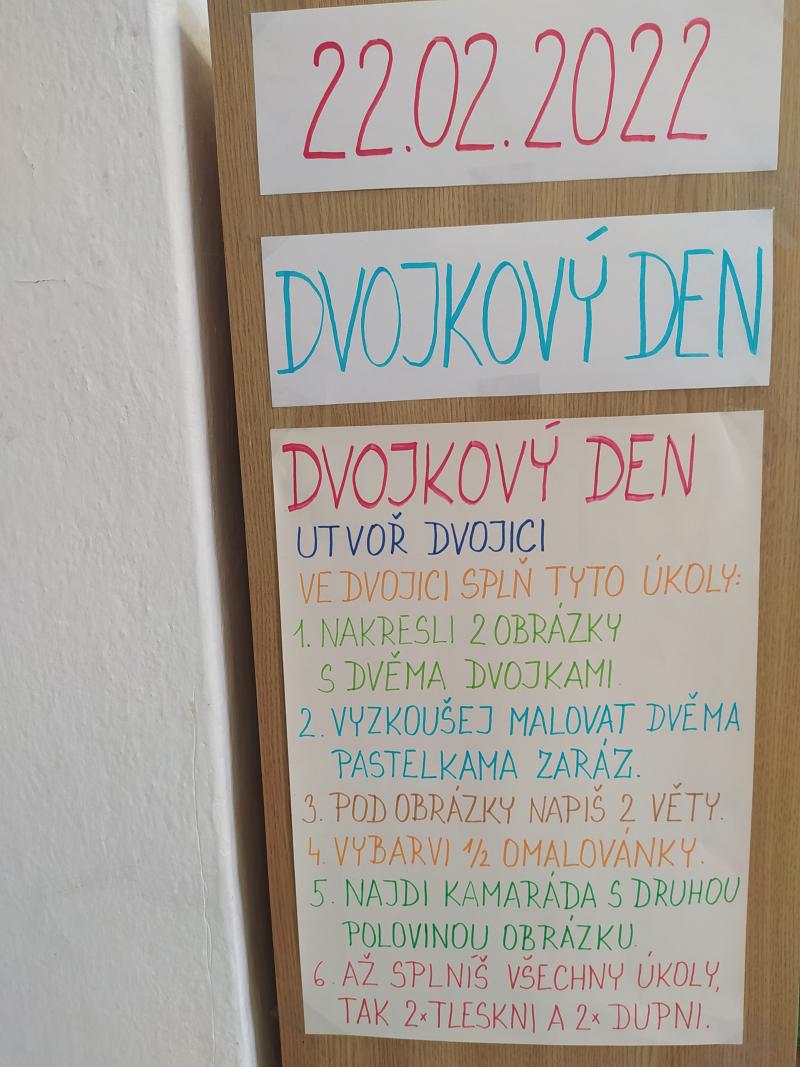 22.02.2022
DVOJKOVÝ DEN
DVOJKOVÝ DEN
UTVOŘ DVOJICI
VE DVOJICI SPLŇ TYTO ÚKOLY:
1. NAKRESLI 2 OBRÁZKY
S DVĚMA DVOJKAMI.
2. VYZKOUŠEJ MALOVAT DVĚMA
PASTELKAMA ZARÁZ.
3. POD OBRÁZKY NAPIŠ 2 VĚTY.
4. VYBARVI 1/2 OMALOVÁNKY.
5. NAJDI KAMARÁDA S DRUHOU
POLOVINOU OBRÁZKU.
6. AŽ SPLNÍŠ VŠECHNY ÚKOLY,
TAK 2× TLESKNI A 2× DUPNI.